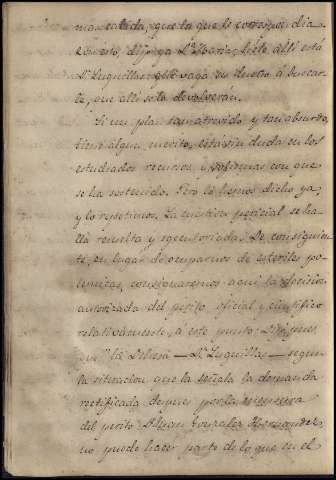 mancatada, que la que le correspondia
esto, dijo ya Da. Maria, hielo alli está
Luquillas; que vaya su dueño á buscar-
le, que alli se lo devolverán.
Si un plan tan atrevido y tan absurdo,
tiene algun merito, estará sin duda en los
estudiados recursos y sofismas con que
se ha sostenido. Pero lo hemos dicho ya,
y lo repetimos. La cuestion pericial se ha-
lla resuelta y ejecutoriada. De consiguien-
te, en lugar de ocuparnos de esteriles po-
lemicas, consignaremos aqui la decision
autorizada del perito oficial y cientifico
relativamente, á este punto. Dijo,
que "la Dehesa — Luquillas — segun
la situacion que la señala la demanda
rectificada despues por la
del perito Dn. Juan Gonzalez Hernandez,
no puede hacer parte de lo que en el